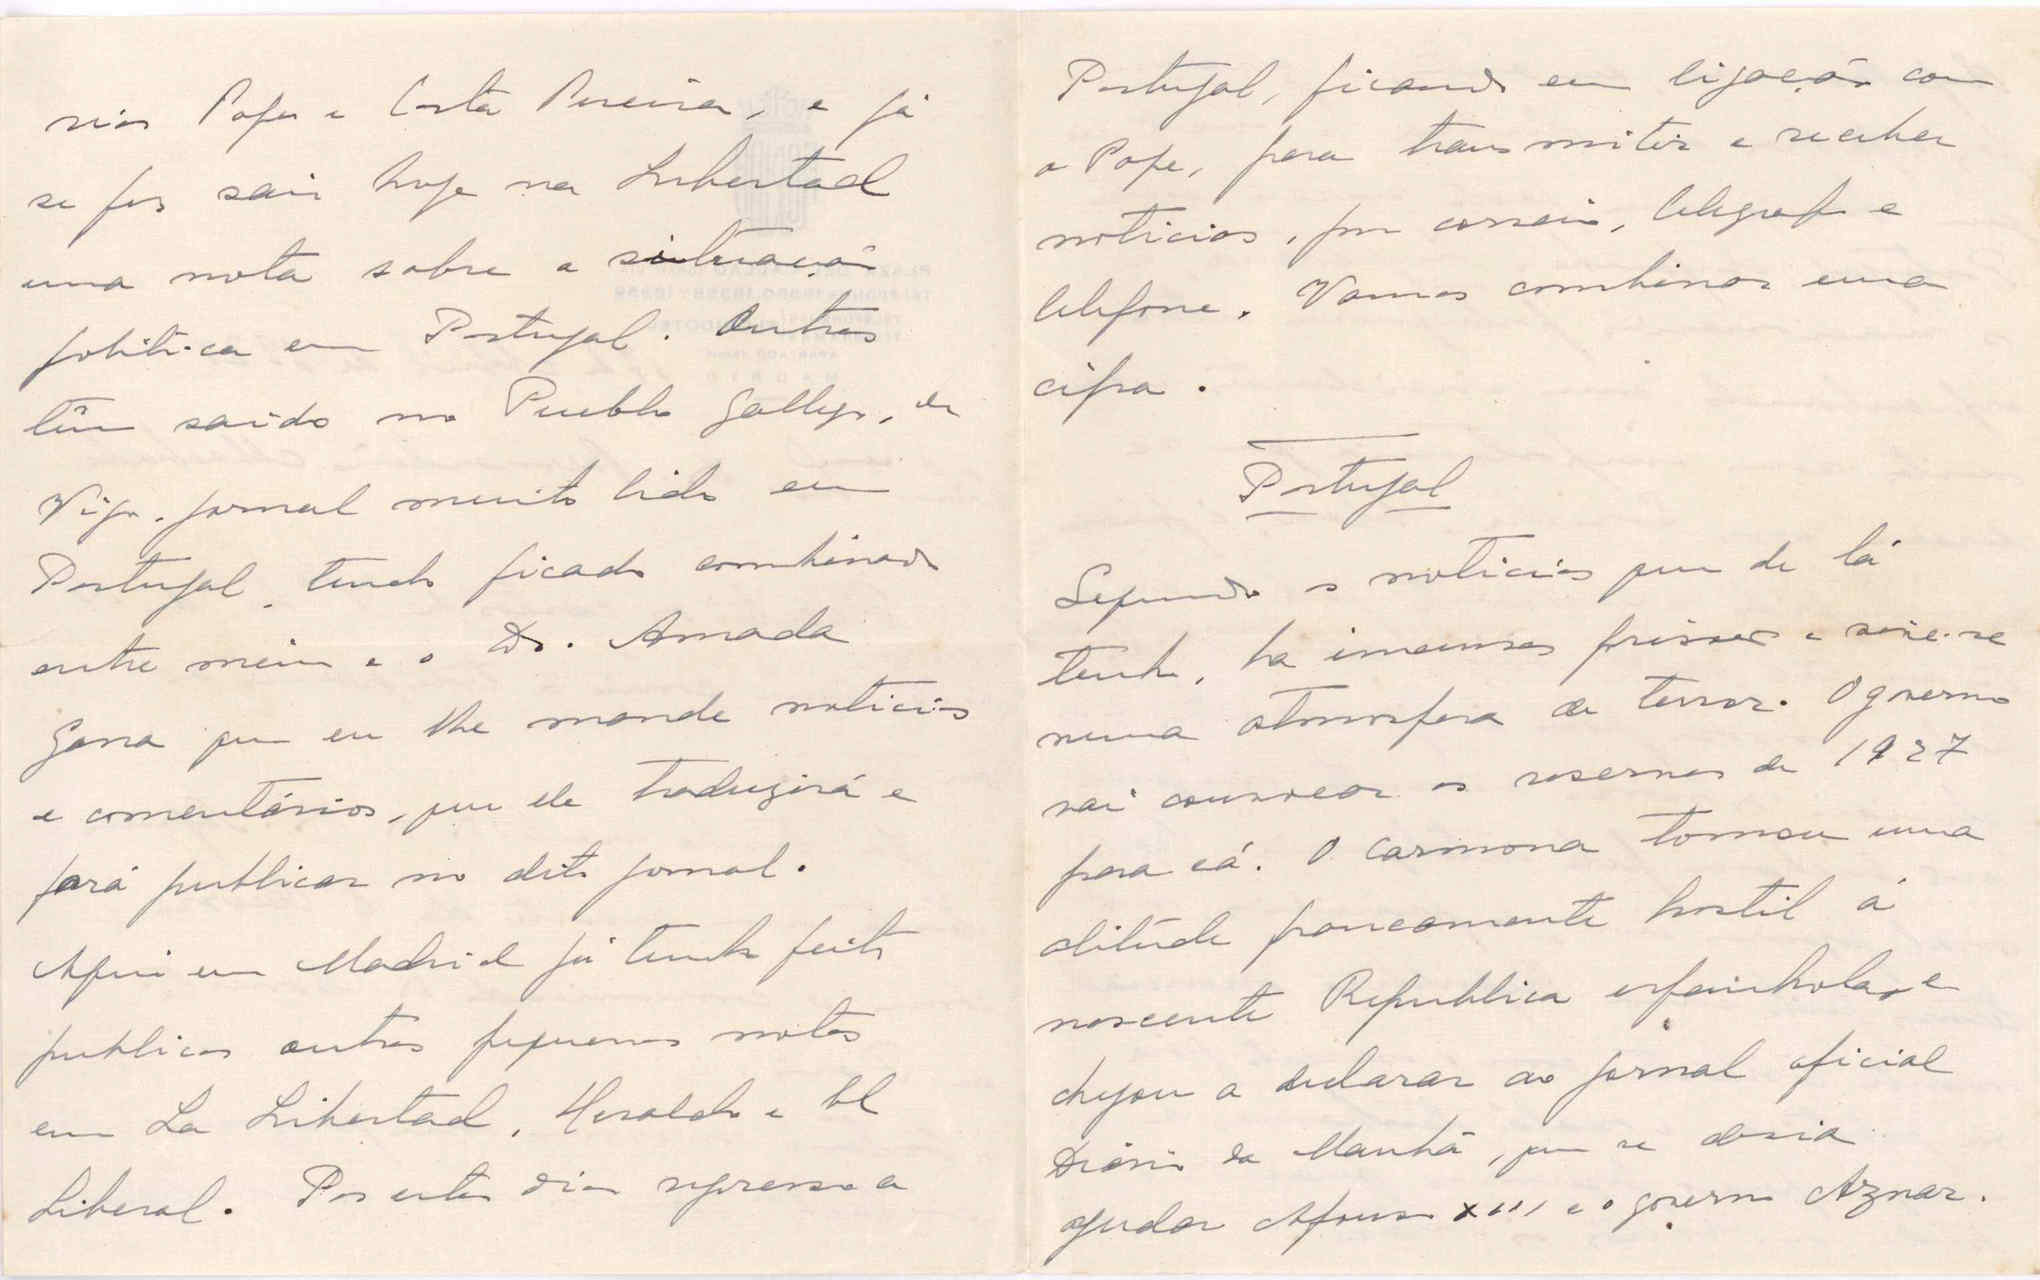 rios Pope e Costa Pereira, e já
se fez sair hoje na Libertad
uma nota sobre a situação
politica em Portugal. Outras
têm saido no Pueblo Gallego, de
Vigo, jornal muito lido em
Portugal, tendo ficado combinado
entre mim e o Dr. Amada
Garra que eu lhe mande noticias
e comentários, que ele traduzirá e
fará publicar no dito jornal.
Aqui em Madrid já tenho feito
publicar outras pequenas notas
em La Libertad, Heraldo e El
Liberal. Por estes dias regressa a
Portugal, ficando em ligação com
o Pope, para transmitir e receber
noticias, por correio, telegrafo e
telefone. Vamos combinar uma
cifra.
Portugal
Segundo as noticias que de lá
tenho, ha imensas prisões e vive-se
numa atmosfera de terror. O governo
vai convocar as reservas de 1927
para cá. O Carmona tomou uma
atitude francamente hostil á
nascente Republica espanhola, e
chegou a declarar ao jornal oficial
Diário da Manhã, que se devia
ajudar Afonso XIII e o governo Aznar.